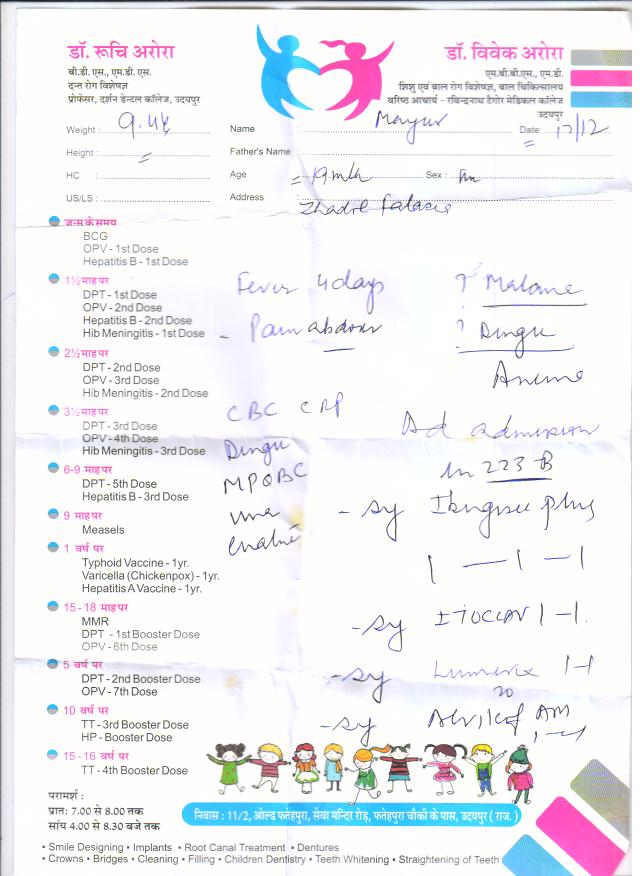 डॉ. रूचि अरोरा
बी.डी. एस., एम.डी. एस.
दन्त रोग विशेषज्ञ
प्रोफेसर, दर्शन डेन्टल कॉलेज, उदयपुर
डॉ. विवेक अरोरा
एम.बी.बी.एस., एम.डी.
शिशु एवं बाल रोग विशेषज्ञ, बाल चिकित्सालय
वरिष्ठ आचार्य - रविन्द्रनाथ टैगोर मेडिकल कॉलेज
उदयपुर
Weight : 9.45 Name : Mayur Date: 17/12
Height : Father's Name :
HC : Age : 19 mth Sex :
US/LS : Address :
जन्म के समय
BCG
OPV - 1st Dose
Hepatitis B - 1st Dose
1½ माह पर
DPT - 1st Dose
OPV - 2nd Dose
Hepatitis B - 2nd Dose
Hib Meningitis - 1st Dose
Fever 4 days
- Pain abdomen
2½ माह पर
DPT - 2nd Dose
OPV - 3rd Dose
Hib Meningitis - 2nd Dose
3½ माह पर
DPT - 3rd Dose
OPV - 4th Dose
Hib Meningitis - 3rd Dose
CBC CRP
Dingu
MPQBC
6-9 माह पर
DPT - 5th Dose
Hepatitis B - 3rd Dose
9 माह पर
Measels
1 वर्ष पर
Typhoid Vaccine - 1yr.
Varicella (Chickenpox) - 1yr.
Hepatitis A Vaccine - 1yr.
15 - 18 माह पर
MMR
DPT - 1st Booster Dose
OPV - 6th Dose
5 वर्ष पर
DPT - 2nd Booster Dose
OPV - 7th Dose
10 वर्ष पर
TT - 3rd Booster Dose
HP - Booster Dose
15 - 16 वर्ष पर
TT - 4th Booster Dose
? Dingu
Ad admission
in 223 B
- Sy Ibugesic plus
1 — 1 — 1
- Sy 1-1
- Sy 1-1
20
- Sy
परामर्श :
प्रातः 7.00 से 8.00 तक
सांय 4.00 से 8.30 बजे तक
निवास : 11/2, ओल्ड फतेहपुरा, सेवा मन्दिर रोड़, फतेहपुरा चौकी के पास, उदयपुर ( राज. )
• Smile Designing • Implants • Root Canal Treatment • Dentures
• Crowns • Bridges • Cleaning • Filling • Children Dentistry • Teeth Whitening • Straightening of Teeth